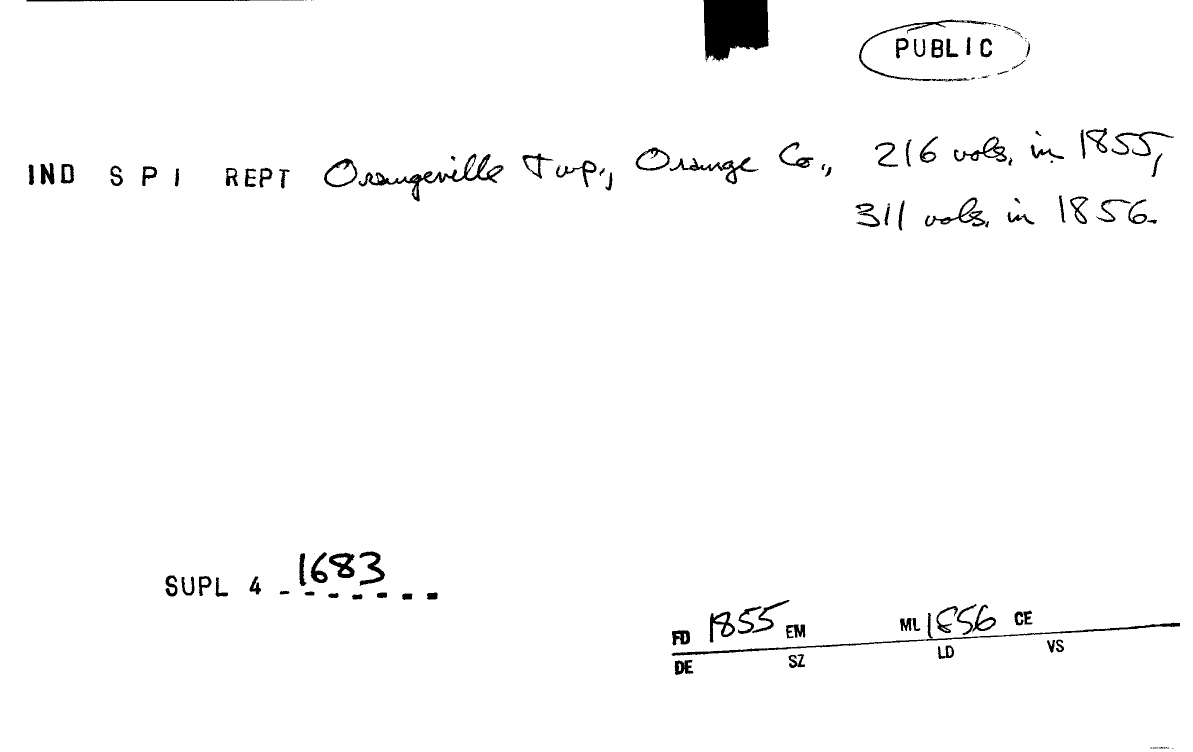 PUBLIC
IND S P I REPT Orangeville Twp., Orange Co., 216 vols. in 1855,
311 vols. in 1856.
SUPL 4 1683
FD 1855 EM ML 1856 CE
DE SZ LD VS